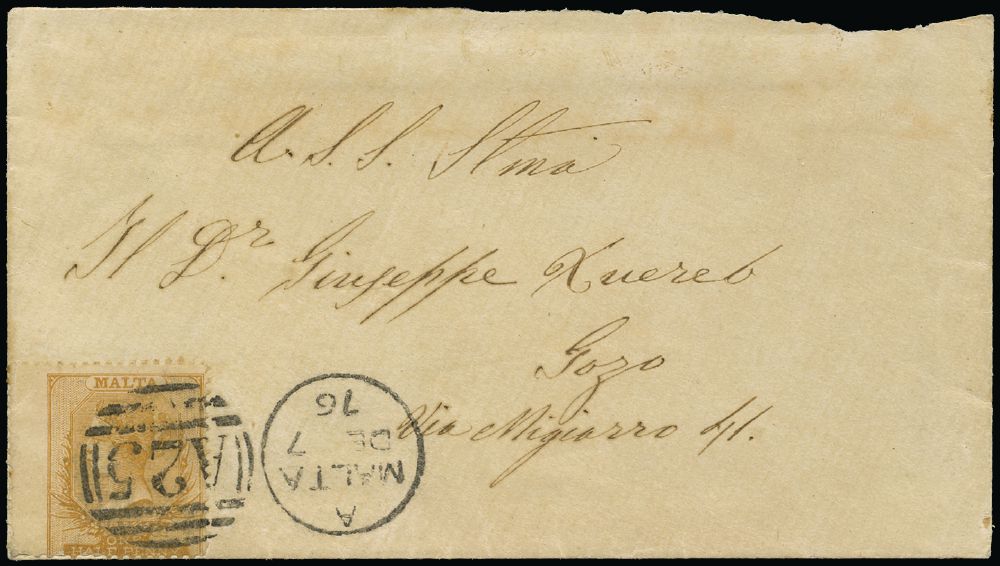 A. S. S. Stma
Il Dr. Giuseppe Xuereb
Gozo
Via Migiarro 41.
MALTA
HALF PENNY
A25
A
MALTA
DE 7
76